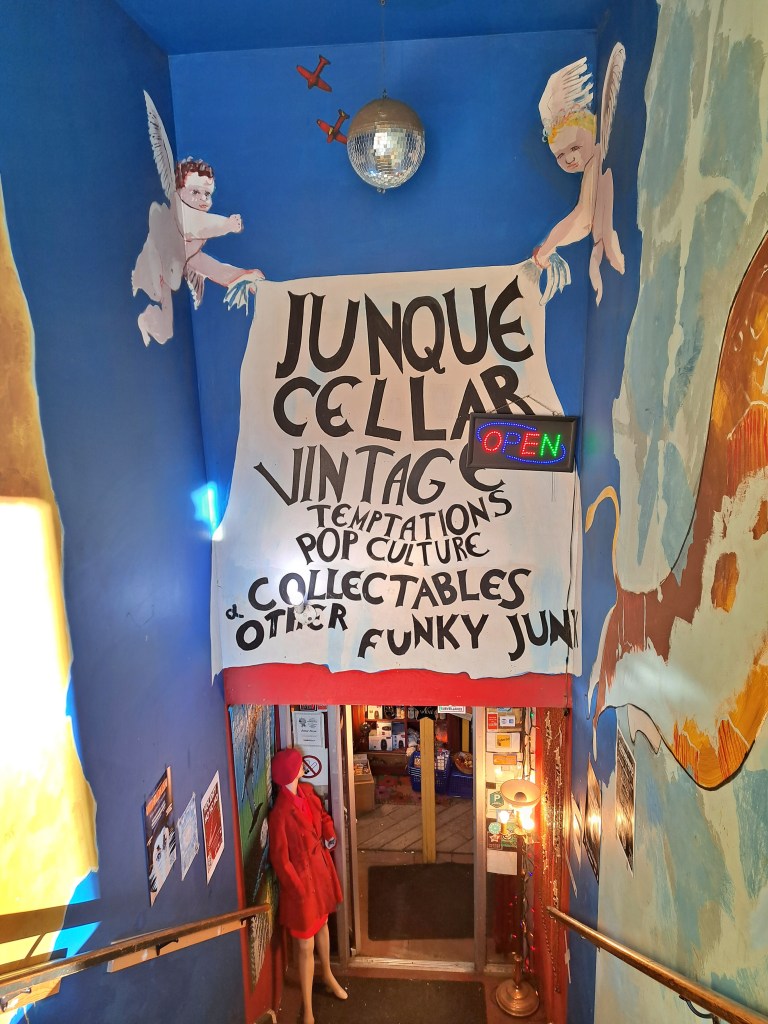 JUNQUE
CELLAR
OPEN
VINTAGE
TEMPTATIONS
POP CULTURE
& COLLECTABLES
OTHER FUNKY JUNK